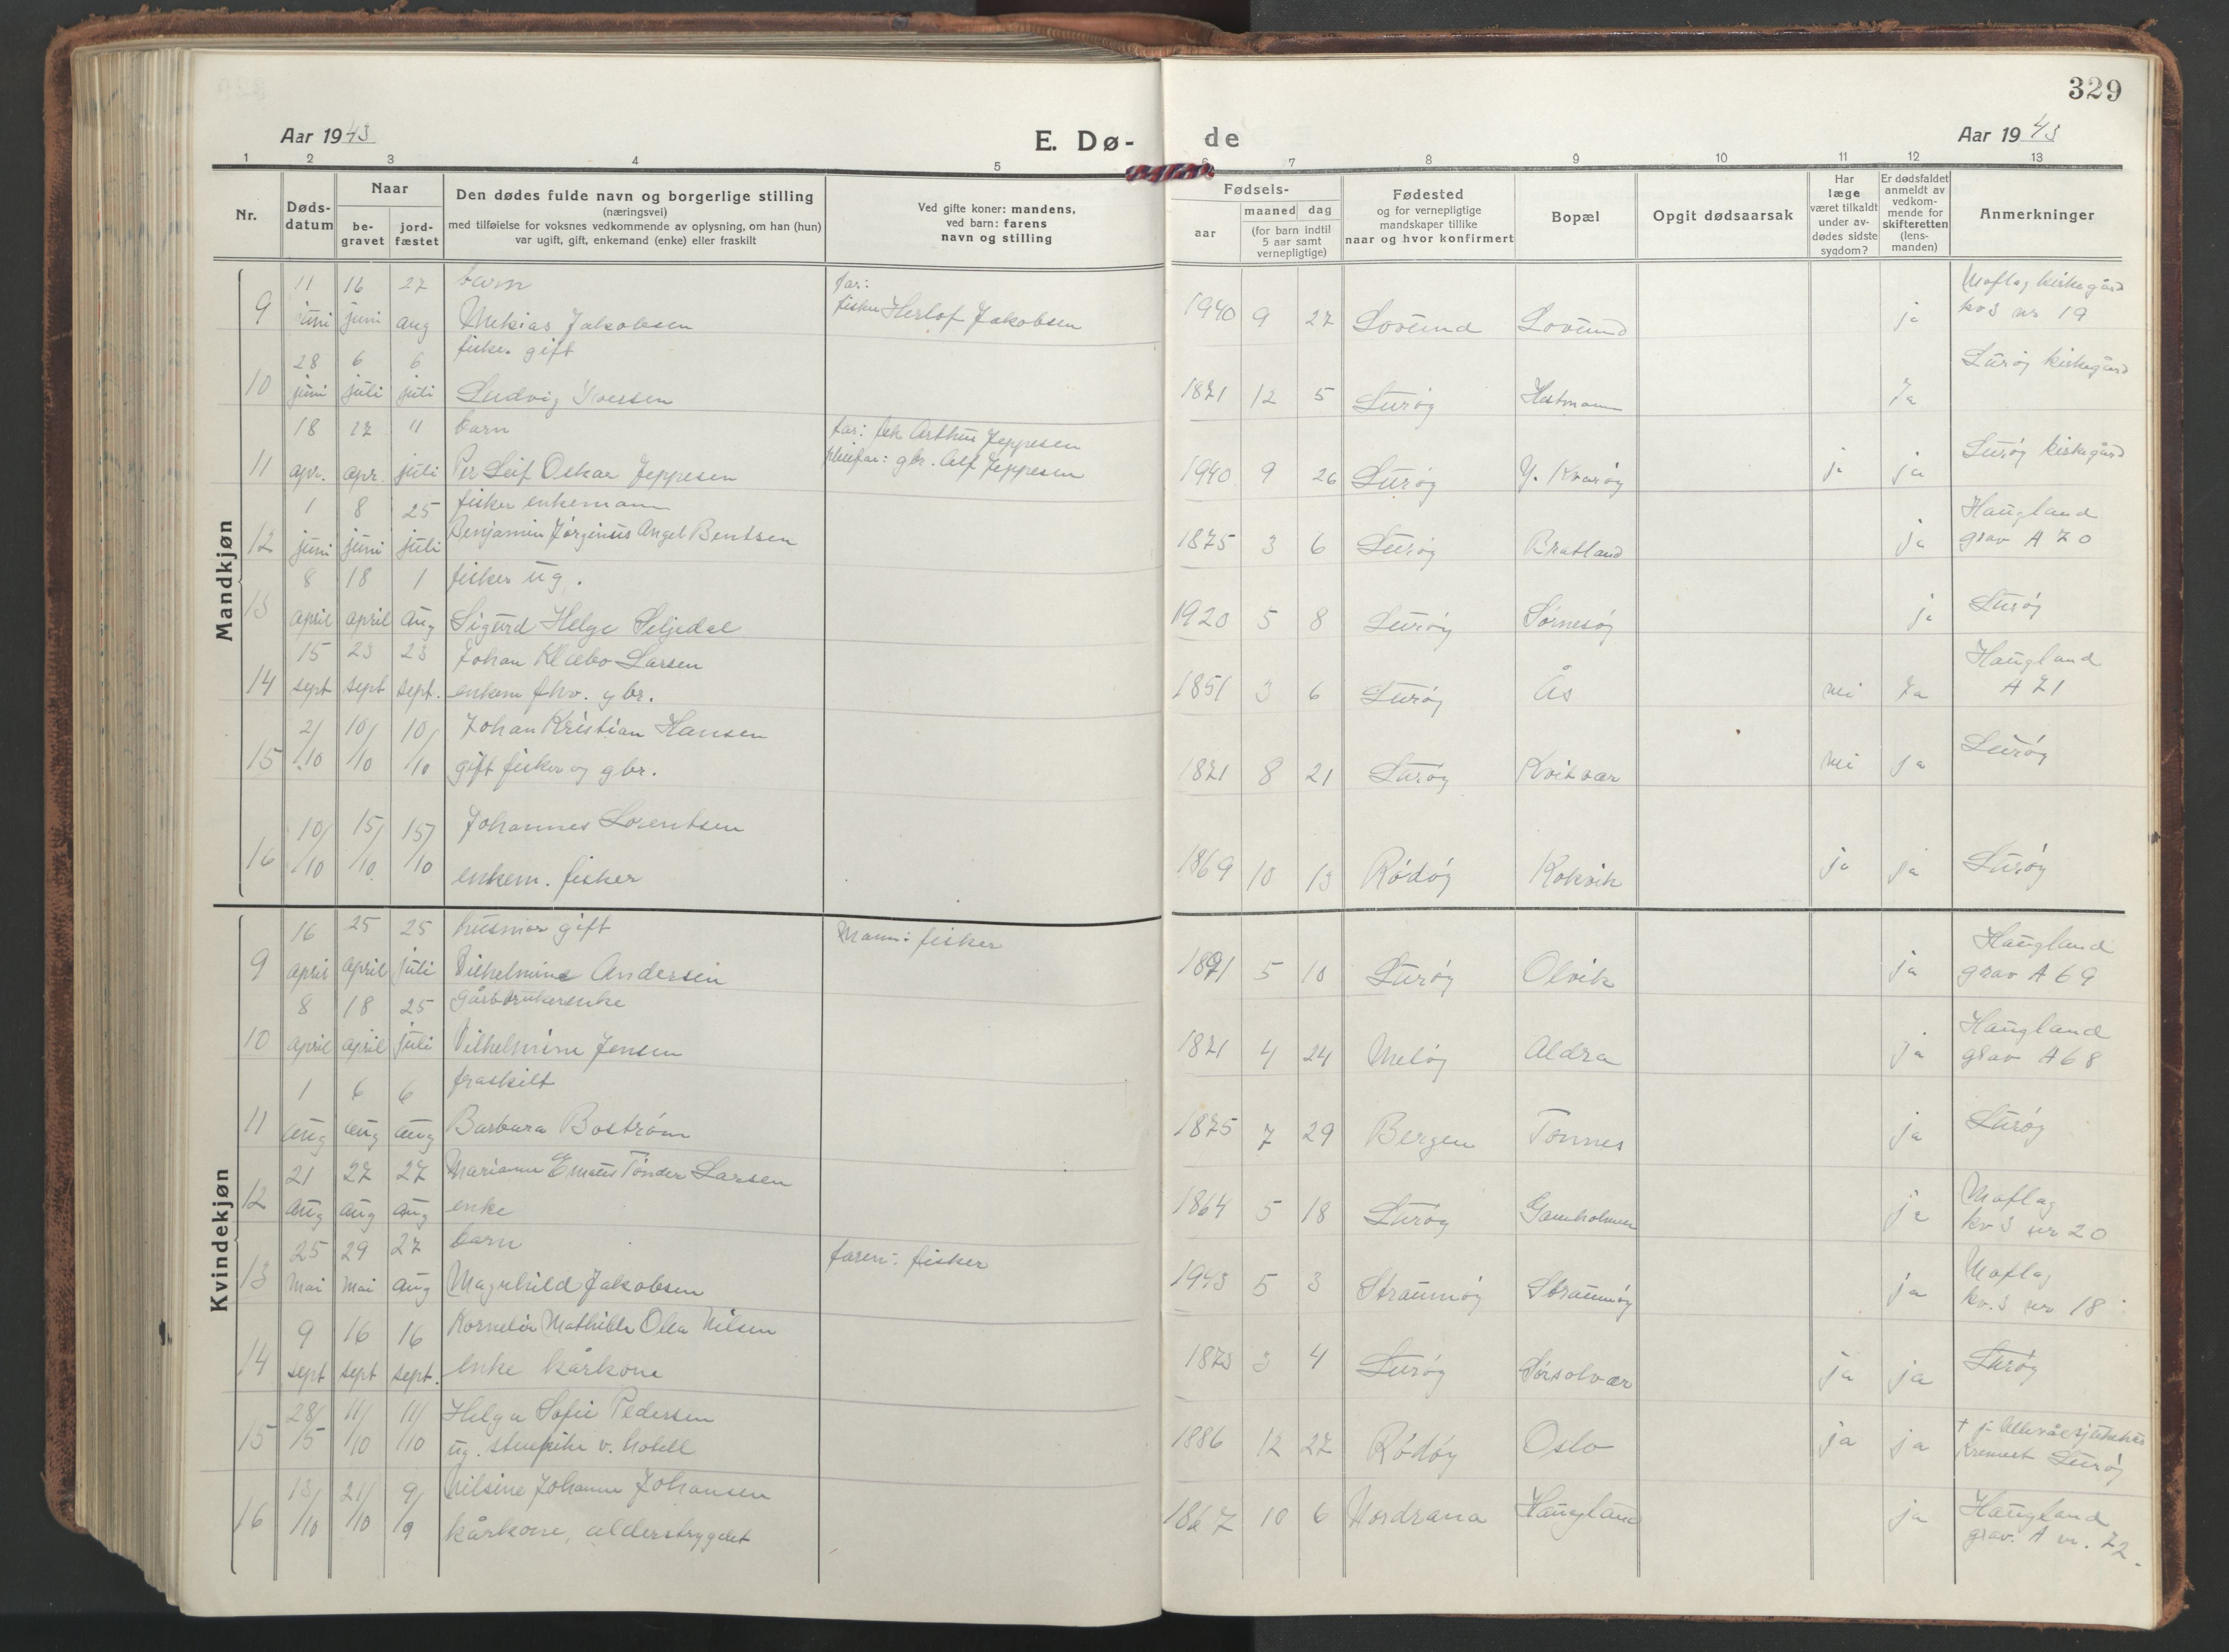 329
Aar 1943
E. Dø-
de
Aar 1943
1 2 3 4 5 6 7 8 9 10 11 12 13
Nr.
Døds-
datum
Naar
be-
gravet
jord-
fæstet
Den dødes fulde navn og borgerlige stilling
(næringsvei)
med tilføielse for voksnes vedkommende av oplysning, om han (hun)
var ugift, gift, enkemand (enke) eller fraskilt
Ved gifte koner: mandens,
ved barn: farens
navn og stilling
Fødsels-
aar
maaned dag
(for barn indtil
5 aar samt
vernepligtige)
Fødested
og for vernepligtige
mandskaper tillike
naar og hvor konfirmert
Bopæl
Opgit dødsaarsak
Har
læge
været tilkaldt
under av-
dødes sidste
sygdom?
Er dødsfaldet
anmeldt av
vedkom-
mende for
skifteretten
(lens-
manden)
Anmerkninger
Mandkjøn
11 16 27 barn far: Moflag kirkegård
9 juni juni aug Mekias Jakobsen fisker Herlof Jakobsen 1940 9 27 Lovund Lovund ja kv3 nr 19
28 6 6 fisker gift Lurøy kirkegård
10 juni juli juli Ludvig Iversen 1871 12 5 Lurøy Hestmann Ja
18 27 11 barn far: fsk Arthur Jeppesen Lurøy kirkegård
11 apr. apr. juli Per Leif Oskar Jeppesen pleiefar: gbr. Alf Jeppesen 1940 9 26 Lurøy Y. Kvarøy ja ja
1 8 25 fisker enkemann Haugland
12 juni juni juli Benjamin Jørginus Angel Bentsen 1875 3 6 Lurøy Bratland ja grav A 70
8 18 1 fisker ug. Lurøy
13 april april aug Sigurd Helge Seljedal 1920 5 8 Lurøy Sørnesøy ja
15 23 23 Johan Klæbo Larsen Haugland
14 sept sept sept. enkem fhv. gbr. 1851 3 6 Lurøy Ås nei Ja A 71
2/ 10/ 10/ Johan Kristian Hansen Lurøy
15 /10 /10 /10 gift fisker og gbr. 1871 8 21 Lurøy Kvitvær nei ja
10/ 15/ 15/ Johannes Lorentsen
16 /10 /10 /10 enkem. fisker 1869 10 13 Rødøy Kokvik ja ja Lurøy
Kvindekjøn
16 25 25 husmor gift Mann: fisker Haugland
9 april april juli Vilhelmine Andersen 1891 5 10 Lurøy Olvik ja grav A 69
8 18 25 gårdbrukerenke Haugland
10 april april juli Vilhelmine Jensen 1871 4 24 Meløy Aldra ja grav A 68
1 6 6 fraskilt Lurøy
11 aug aug aug Barbara Bostrøm 1875 7 29 Bergen Tonnes ja
21 27 27 Mariane Tønder Larsen Moflag
12 aug aug aug enke 1864 5 18 Lurøy ja kv 3 nr 20
25 29 27 barn faren: fisker Moflag
13 Mai Mai aug Magnhild Jakobsen 1943 5 3 Straumøy Straumøy ja kv. 3 nr 18
9 16 16 Kornelia Mathilde Olea Nilsen Lurøy
14 sept sept sept. enke kårkone 1873 3 4 Lurøy Sørsolvær ja ja
28/ 11/ 11/ Helga Sofie Pedersen
15 /5 /10 /10 ug. stuepike v. hotell 1886 12 27 Rødøy Oslo ja ja † Ullevål sjukehus
Kremert Lurøy
13/ 21/ 9/ Nilsine Johanne Johansen Haugland
16 /10 /10 /9 kårkone, alderstrygdet 1867 10 6 Nordrana Haugland ja grav. A nr. 72.